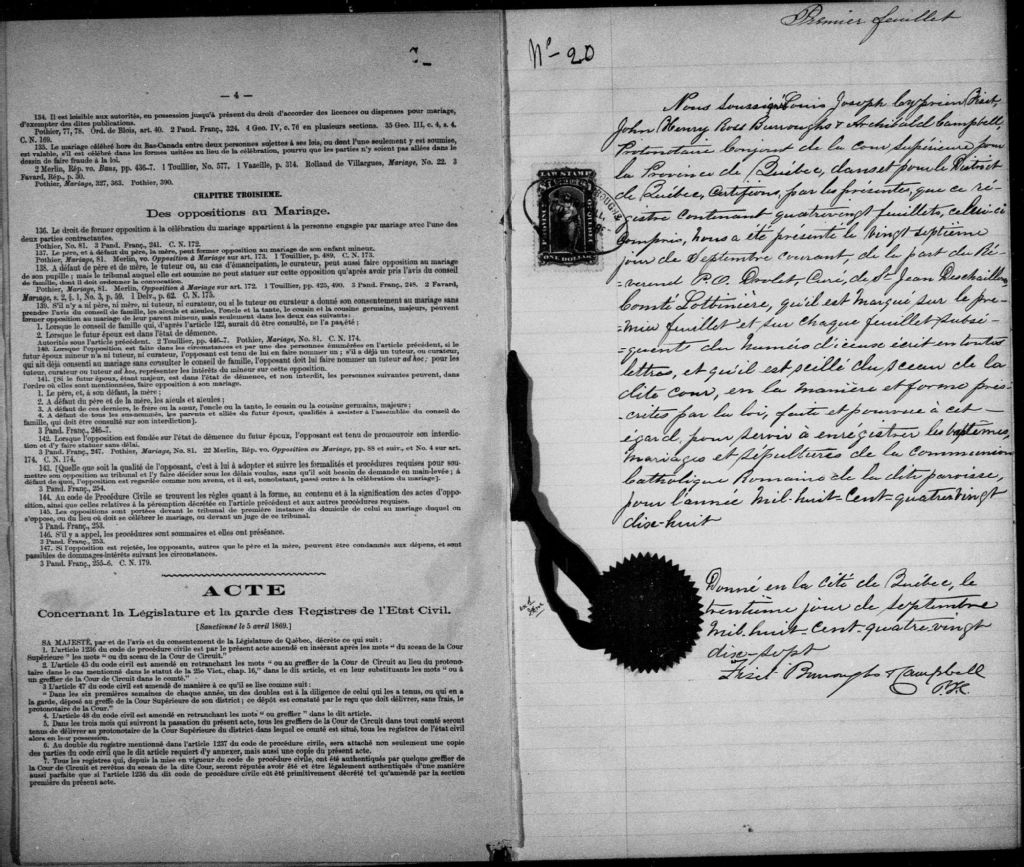 — 4 —
134. Il est leisible aux autorités, en possession jusqu'à présent du droit d'accorder des licences ou dispenses pour mariage,
d'exempter des dites publications.
Pothier, 77, 78. Ord. de Blois, art. 40. 2 Pand. Franç., 324. 4 Geo. IV, c. 76 en plusieurs sections. 35 Geo. III, c. 4, s. 4.
C. N. 169.
135. Le mariage célébré hors du Bas-Canada entre deux personnes sujettes à ses lois, ou dont l'une seulement y est soumise,
est valable, s'il est célébré dans les formes usitées au lieu de la célébration, pourvu que les parties n'y soient pas allées dans le
dessin de faire fraude à la loi.
2 Merlin, Rép. vo. Bans, pp. 436-7. 1 Touillier, No. 577. 1 Vazeille, p. 314. Rolland de Villargues, Mariage, No. 22. 3
Favard, Rép., p. 30.
Pothier, Mariage, 327, 363. Pothier, 390.
CHAPITRE TROISIEME.
Des oppositions au Mariage.
136. Le droit de former opposition à la célébration du mariage appartient à la personne engagée par mariage avec l'une des
deux parties contractantes.
Pothier, No. 81. 3 Pand. Franç., 241. C. N. 172.
137. Le père, et à défaut du père, la mère, peut former opposition au mariage de son enfant mineur.
Pothier, Mariage, 81. Merlin, vo. Opposition à Mariage sur art. 173. 1 Touillier, p. 489. C. N. 173.
138. A défaut de père et de mère, le tuteur, ou, au cas d'émancipation, le curateur, peut aussi faire opposition au mariage
de son pupille; mais le tribunal auquel elle est soumise ne peut statuer sur cette opposition qu'après avoir pris l'avis du conseil
de famille, dont il doit ordonner la convocation.
Pothier, Mariage, 81. Merlin, Opposition à Mariage sur art. 172. 1 Touillier, pp. 425, 490. 3 Pand. Franç., 248. 2 Favard,
Mariage, s. 2, § 1, No. 3, p. 59. 1 Delv., p. 62. C. N. 175.
139. S'il n'y a ni père, ni mère, ni tuteur, ni curateur, ou si le tuteur ou le curateur a donné son consentement au mariage sans
prendre l'avis du conseil de famille, les aïeuls et aïeules, l'oncle et la tante, le cousin et la cousine germains, majeurs, peuvent
former opposition au mariage de leur parent mineur, mais seulement dans les deux cas suivants:
1. Lorsque le conseil de famille qui, d'après l'article 122, aurait dû être consulté, ne l'a pas été;
2. Lorsque le futur époux est dans l'état de démence.
Autorités sous l'article précédent. 2 Touillier, pp. 446-7. Pothier, Mariage, No. 81. C. N. 174.
140. Lorsque l'opposition est faite dans les circonstances et par une des personnes énumérées en l'article précédent, si le
futur époux mineur n'a ni tuteur, ni curateur, l'opposant est tenu de lui en faire nommer un; s'il a déjà un tuteur, ou curateur,
qui ait déjà consenti au mariage sans consulter le conseil de famille, l'opposant doit lui faire nommer un tuteur ad hoc; pour les
tuteur, curateur ou tuteur ad hoc, représenter les intérêts du mineur sur cette opposition.
141. [Si le futur époux, étant majeur, est dans l'état de démence, et non interdit, les personnes suivantes peuvent, dans
l'ordre où elles sont mentionnées, faire opposition à son mariage.
1. Le père, et, à son défaut, la mère;
2. A défaut du père et de la mère, les aïeuls et aïeules;
3. A défaut de ces derniers, le frère ou la sœur, l'oncle ou la tante, le cousin ou la cousine germains, majeurs;
4. A défaut de tous les sus-nommés, les parents et alliés du futur époux, qualifiés à assister à l'assemblée du conseil de
famille, qui doit être consulté sur son interdiction].
3 Pand. Franç., 246-7.
142. Lorsque l'opposition est fondée sur l'état de démence du futur époux, l'opposant est tenu de promouvoir son interdic-
tion et d'y faire statuer sans délai.
3 Pand. Franç., 247. Pothier, Mariage, No. 81. 22 Merlin, Rép. vo. Opposition au Mariage, pp. 88 et suiv., et No. 4 sur art.
174. C. N. 174.
143. [Quelque soit la qualité de l'opposant, c'est à lui à adopter et suivre les formalités et procédures requises pour sou-
mettre son opposition au tribunal et l'y faire décider sous les délais voulus, sans qu'il soit besoin de demande en main-levée; à
défaut de quoi, l'opposition est regardée comme non avenu, et il est, nonobstant, passé outre à la célébration du mariage].
3 Pand. Franç., 254.
144. Au Code de Procédure Civile se trouvent les règles quant à la forme, au contenu et à la signification des actes d'oppo-
sition, ainsi que celles relatives à la péremption décrétée en l'article précédent et aux autres procédures requises.
145. Les oppositions sont portées devant le tribunal de première instance du domicile de celui au mariage duquel on
s'oppose, ou du lieu où doit se célébrer le mariage, ou devant un juge de ce tribunal.
3 Pand. Franç., 253.
146. S'il y a appel, les procédures sont sommaires et elles ont préséance.
3 Pand. Franç., 253.
147. Si l'opposition est rejetée, les opposants, autres que le père et la mère, peuvent être condamnés aux dépens, et sont
passibles de dommages-intérêts suivant les circonstances.
3 Pand. Franç., 255-6. C. N. 179.
ACTE
Concernant la Législature et la garde des Registres de l'Etat Civil.
[Sanctionné le 5 avril 1869.]
SA MAJESTÉ, par et de l'avis et du consentement de la Législature de Québec, décrète ce qui suit:
1. L'article 1236 du code de procédure civile est par le présent acte amendé en insérant après les mots " du sceau de la Cour
Supérieure " les mots " ou du sceau de la Cour de Circuit."
2. L'article 45 du code civil est amendé en retranchant les mots " ou au greffier de la Cour de Circuit au lieu du protono-
taire dans le cas mentionné dans le statut de la 25e Vict., chap. 16," dans le dit article, et en leur substituant les mots " ou à
un greffier de la Cour de Circuit dans le comté."
3 L'article 47 du code civil est amendé de manière à ce qu'il se lise comme suit:
" Dans les six premières semaines de chaque année, un des doubles est à la diligence de celui qui les a tenus, ou qui en a
la garde, déposé au greffe de la Cour Supérieure de son district; ce dépôt est constaté par le reçu que doit délivrer, sans frais, le
protonotaire de la Cour."
4. L'article 48 du code civil est amendé en retranchant les mots " ou greffier " dans le dit article.
5. Dans les trois mois qui suivront la passation du présent acte, tous les greffiers de la Cour de Circuit dans tout comté seront
tenus de délivrer au protonotaire de la Cour Supérieure du district dans lequel ce comté est situé, tous les registres de l'état civil
alors en leur possession.
6. Au double du registre mentionné dans l'article 1237 du code de procédure civile, sera attaché non seulement une copie
des parties du code civil que le dit article requiert d'y annexer, mais aussi une copie du présent acte.
7. Tous les registres qui, depuis la mise en vigueur du code de procédure civile, ont été authentiqués par quelque greffier de
la Cour de Circuit et revêtus du sceau de la dite Cour, seront réputés avoir été et être légalement authentiqués d'une manière
aussi parfaite que si l'article 1236 du dit code de procédure civile eût été primitivement décrété tel qu'amendé par la section
première du présent acte.
Premier feuillet
No - 20
LAW STAMP
ONE DOLLAR
Nous soussignés Louis Joseph Cyprien Fiset,
John Henry Ross Burroughs & Archibald Campbell,
Protonotaire Conjoint de la Cour supérieure pour
la Province de Québec, dans et pour le District
de Québec, Certifions, par les présentes, que ce ré-
gistre contenant quatrevingt feuillets, celui-ci
compris, Nous a été présenté le vingt septième
jour de Septembre courant, de la part du Ré-
verend P.O. Drolet, Curé, de St Jean Deschaillons
Comté Lotbinière, qu'il est marqué sur le pre-
mier feuillet et sur chaque feuillet subsé-
quents du Numéro d'iceux écrit en toutes
lettres, et qu'il est scellé du sceau de la
dite cour, en la manière et forme pres-
crites par la loi, faite et pourvue à cet
égard, pour servir à enrégistrer les baptêmes,
Mariages et sépultures de la Communion
Catholique Romaine de la dite paroisse,
pour l'année Mil-huit-Cent-quatrevingt
dix-huit
Donné en la Cité de Québec, le
trentième jour de septembre
Mil-huit-Cent-quatre-vingt
dix-sept
Fiset Burroughs & Campbell